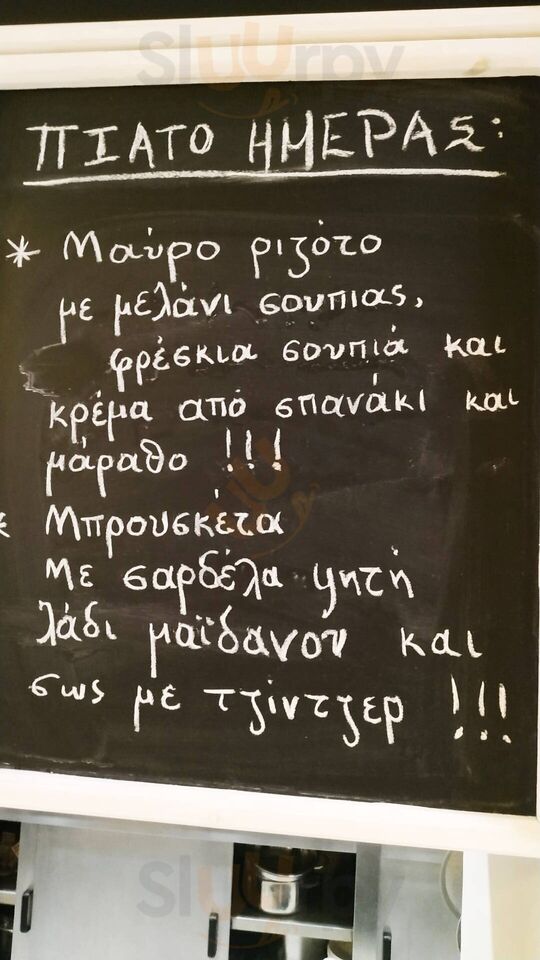 Sluurpy
ΠΙΑΤΟ ΗΜΕΡΑΣ:
* Μαύρο ριζότο
με μελάνι σουπιας,
φρέσκια σουπιά και
κρέμα από σπανάκι και
μάραθο !!!
* Μπρουσκέτα
Με σαρδέλα ψητή
λάδι μαϊδανου και
σως με τζίντζερ !!!
Sluurpy